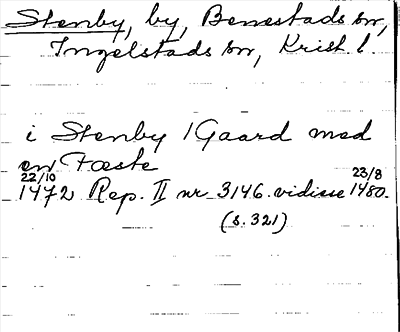 Stenby, by, Benestads sn,
Ingelstads sn, Krist. l.
i Stenby 1 Gaard med
en Fæste
22/10 23/8
1472 Rep. II nr 3146. vidisse 1480.
(s. 321)